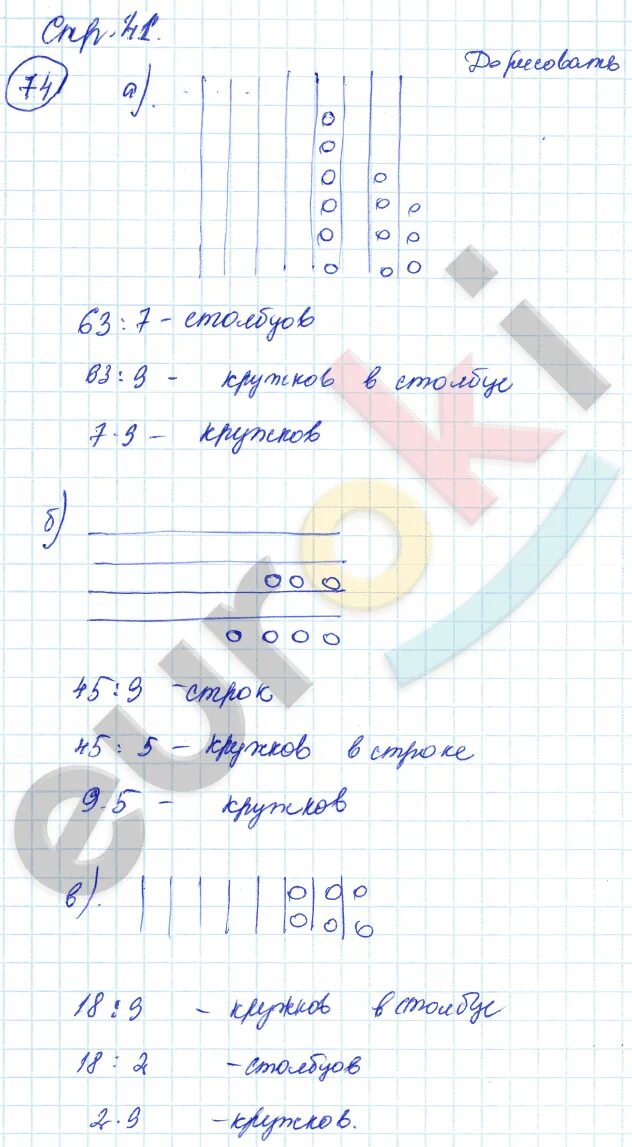 Стр. 41.
Дорисовать
74 а).
63 : 7 - столбцов
63 : 9 - кружков в столбце
7 · 9 - кружков
б)
45 : 9 - строк
45 : 5 - кружков в строке
9 · 5 - кружков
в).
18 : 9 - кружков в столбце
18 : 2 - столбцов
2 · 9 - кружков.
euroki